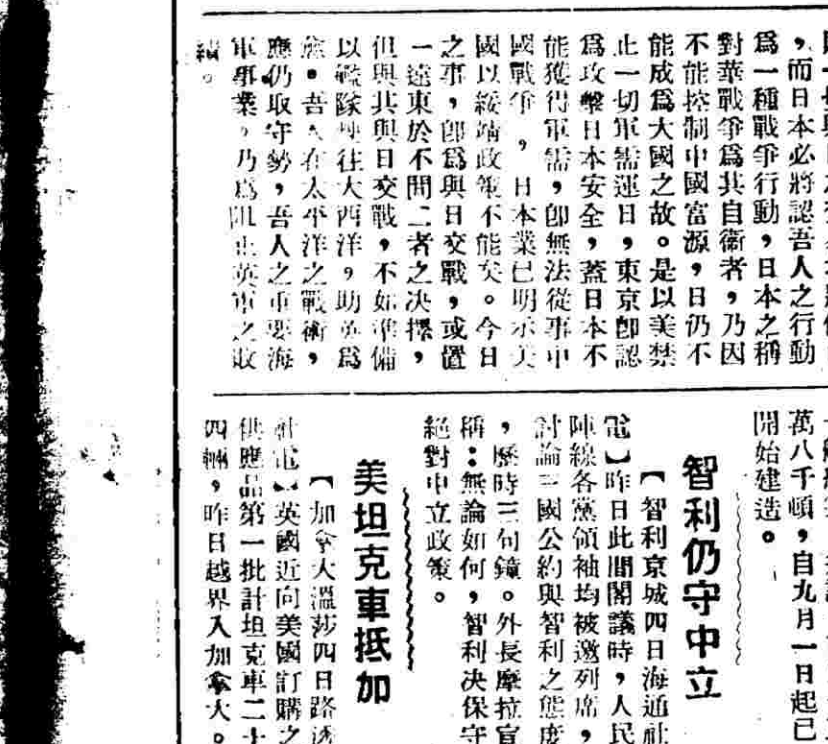 ，而日本必將認吾人之行動
爲一種戰爭行動，日本之稱
對華戰爭爲其自衞者，乃因
不能控制中國富源，日仍不
能成爲大國之故。是以美禁
止一切軍需運日，東京卽認
爲攻擊日本安全，蓋日本不
能獲得軍需，卽無法從事中
國戰爭，日本業已明示美
國以綏靖政策不能矣。今日
之事，卽爲與日交戰，或置
一遠東於不問二者之決擇，
但與其與日交戰，不如準備
以艦隊 往大西洋，助英爲
 。吾人在太平洋之戰術，
應仍取守勢，吾人之重要海
軍事業，乃爲阻止英軍之敗
績。
萬八千頓，自九月一日起已
開始建造。
智利仍守中立
【智利京城四日海通社
電】昨日此間閣議時，人民
陣線各黨領袖均被邀列席，
討論三國公約與智利之態度
，歷時三句鐘。外長摩拉宣
稱：無論如何，智利決保守
絕對中立政策。
美坦克車抵加
【加拿大溫莎四日路透
社電】英國近向美國訂購之
供應品第一批計坦克車二十
四輛，昨日越界入加拿大。